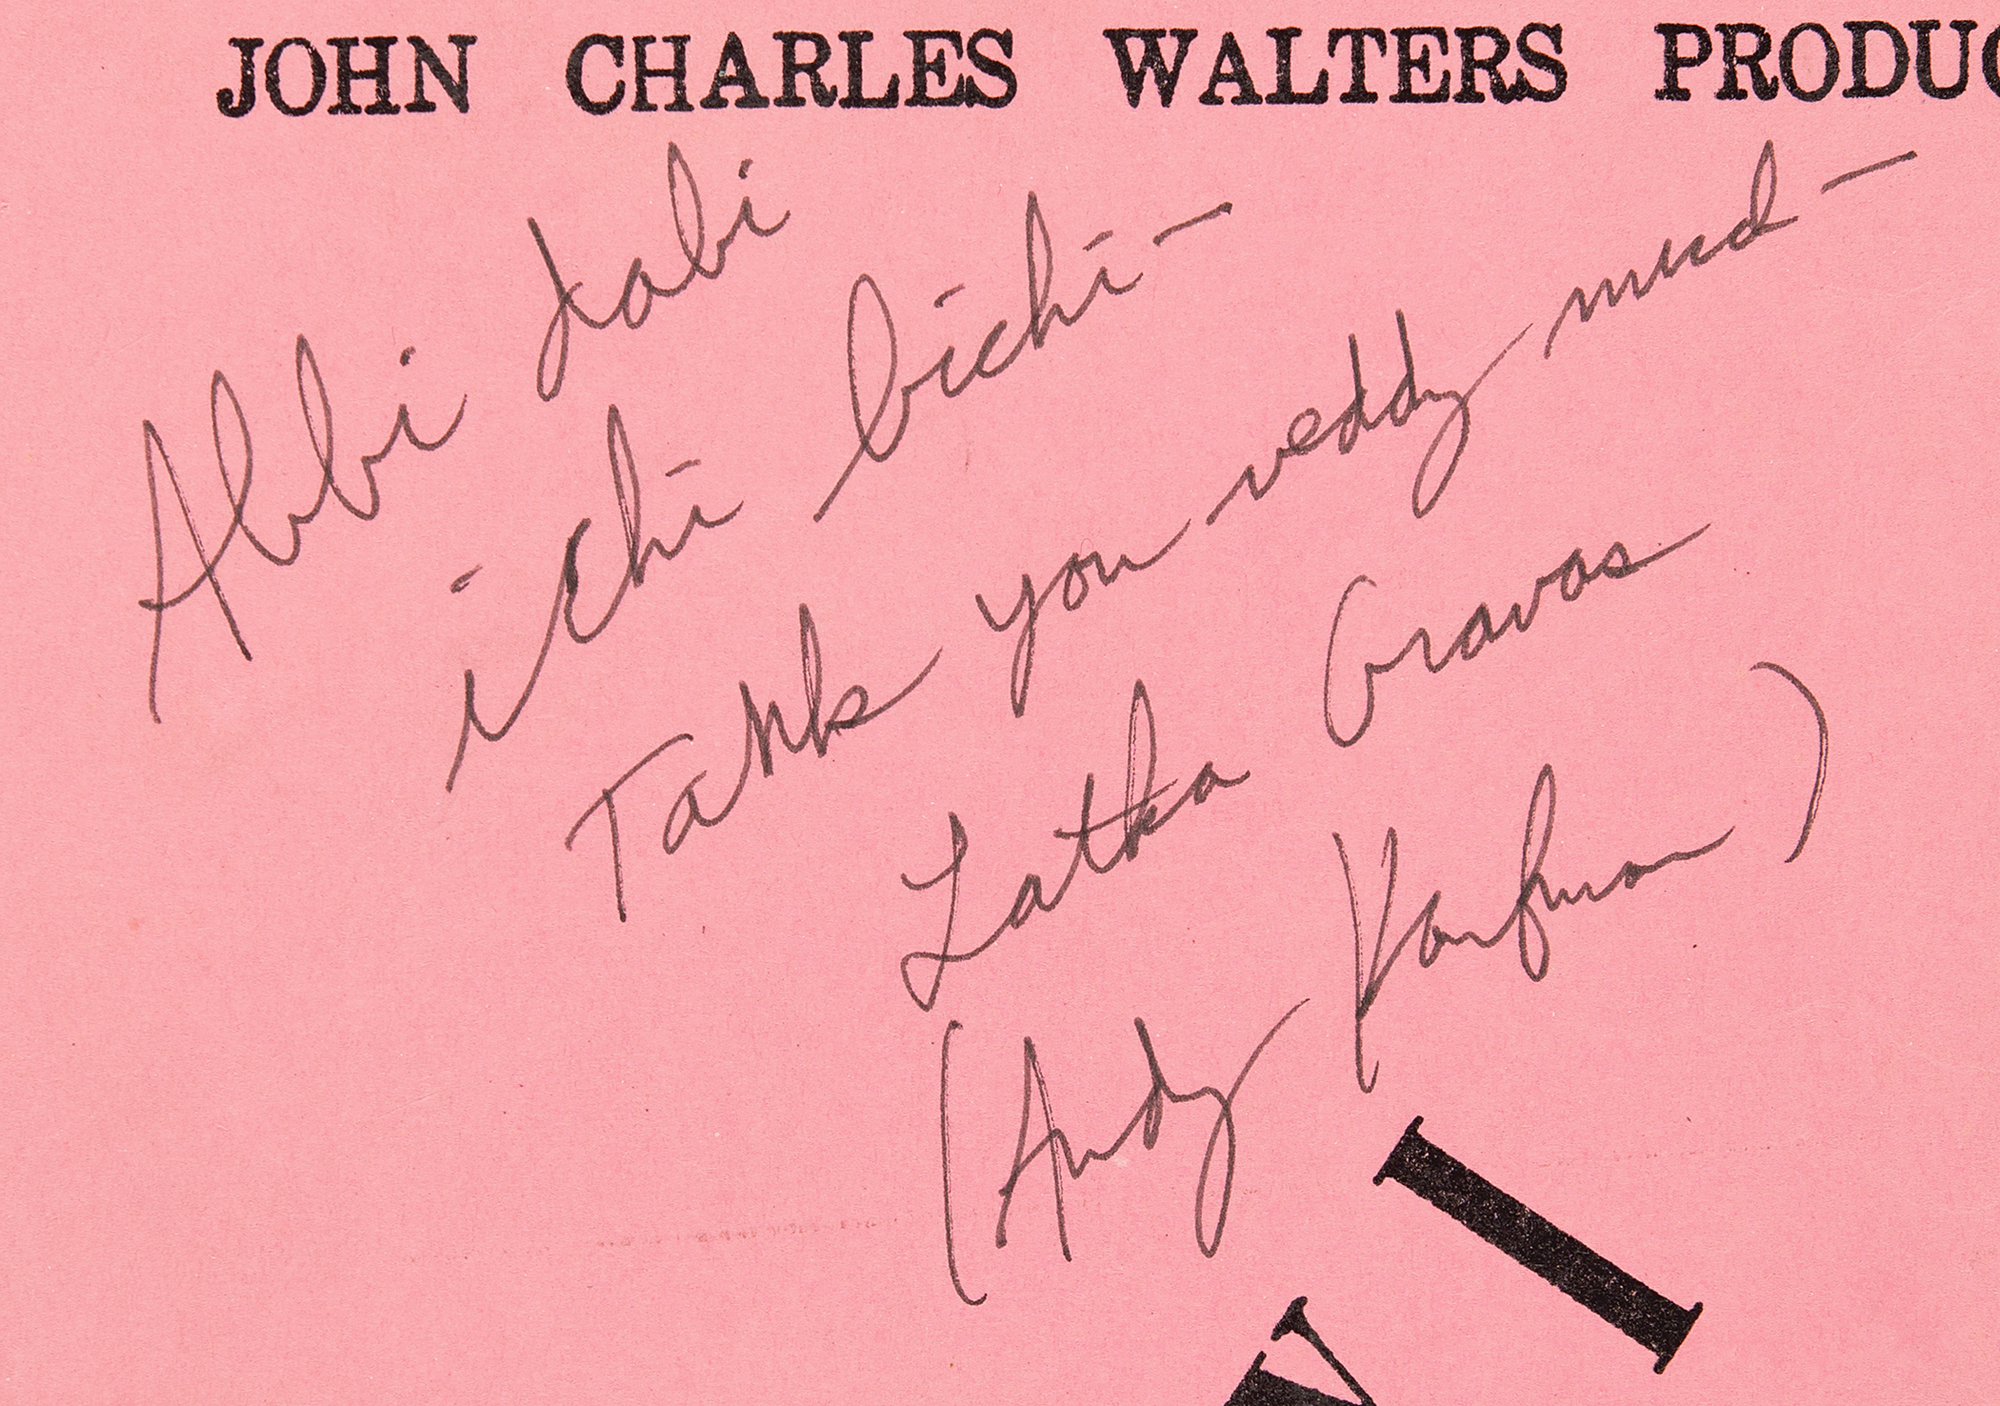 JOHN CHARLES WALTERS PRODUC
Abbi dabi
ichi bichi —
Tank you veddy much —
Latka Gravas
(Andy Kaufman)
X I